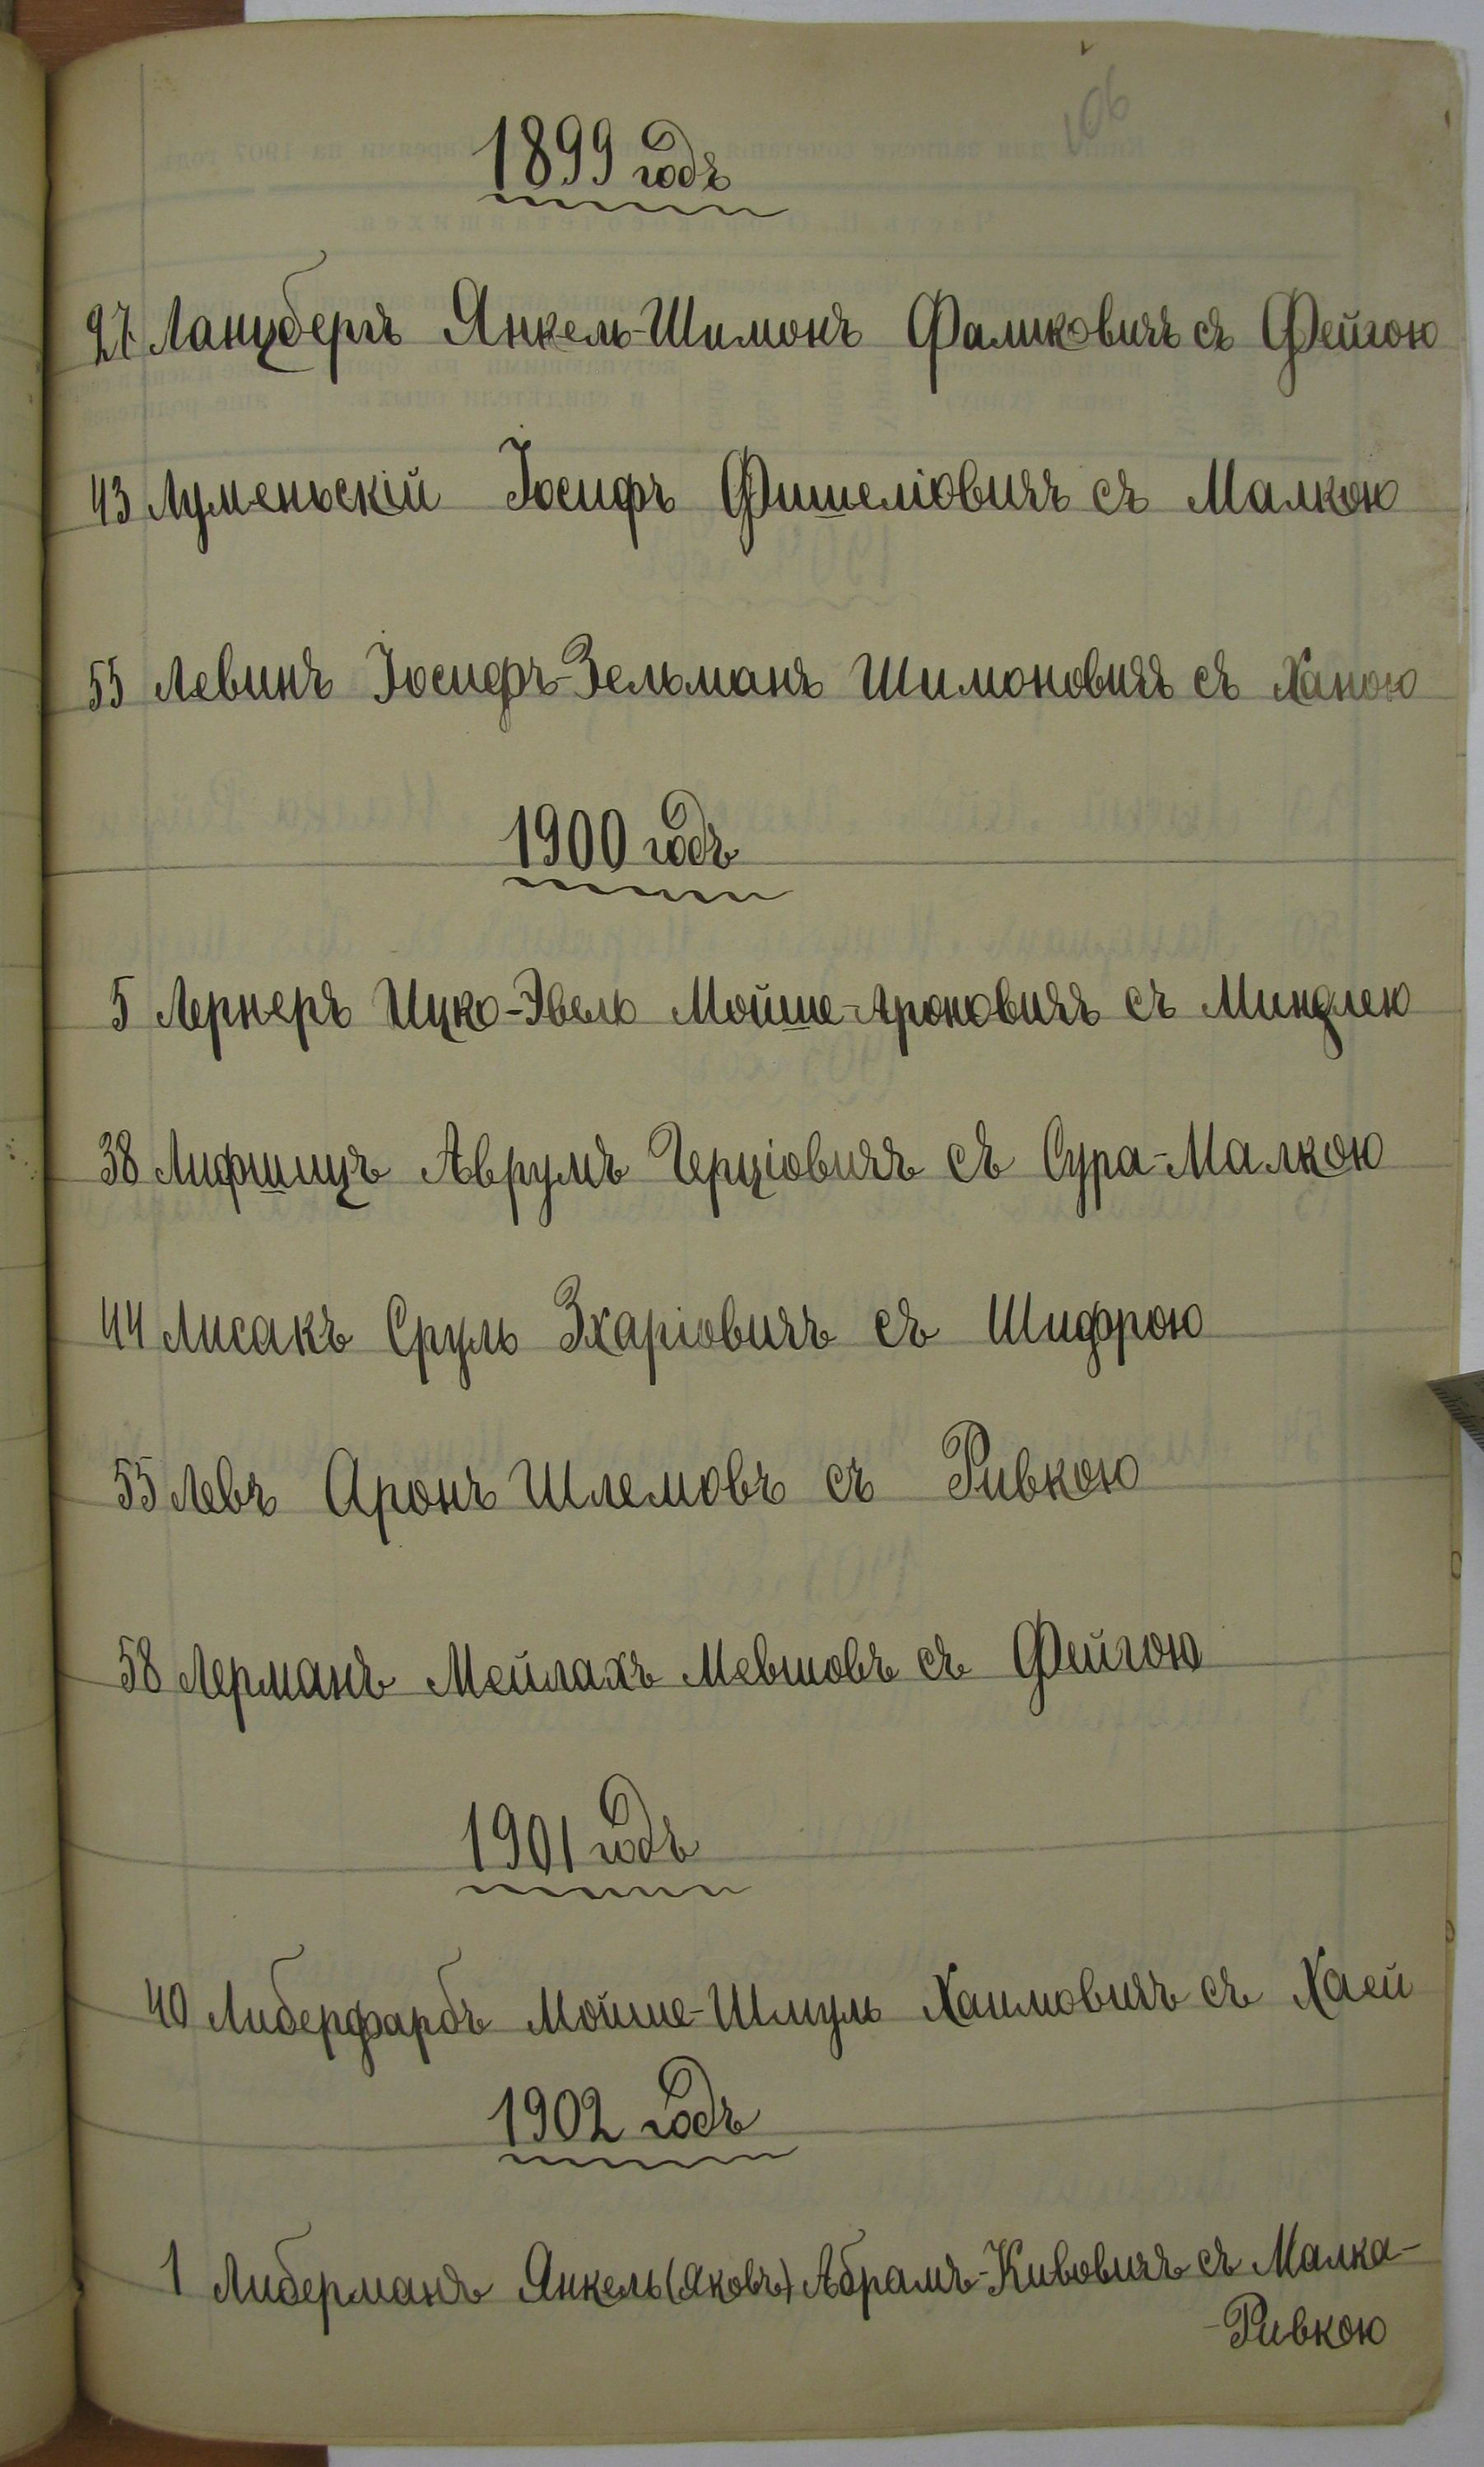 106
1899 годъ
27 Ланцбергъ Янкель-Шимонъ Фалковичъ съ Фейгою
43 Луменьскій Іосифъ Фишеліовичъ съ Малкою
55 Левинъ Іосифъ-Зельманъ Шимоновичъ съ Ханою
1900 годъ
5 Лернеръ Ицко-Эвель Мойше-Ароновичъ съ Миндлею
38 Лифшицъ Аврумъ Герціовичъ съ Сура-Малкою
44 Лисакъ Сруль Зхаріовичъ съ Шифрою
55 Левъ Аронъ Шлемовъ съ Ривкою
58 Лерманъ Мейлахъ Мевшовъ съ Фейгою
1901 годъ
40 Либерфарбъ Мойше-Шмуль Хаимовичъ съ Хаей
1902 годъ
1 Либерманъ Янкель (Яковъ) Абрамъ-Кивовичъ съ Малка-
-Ривкою